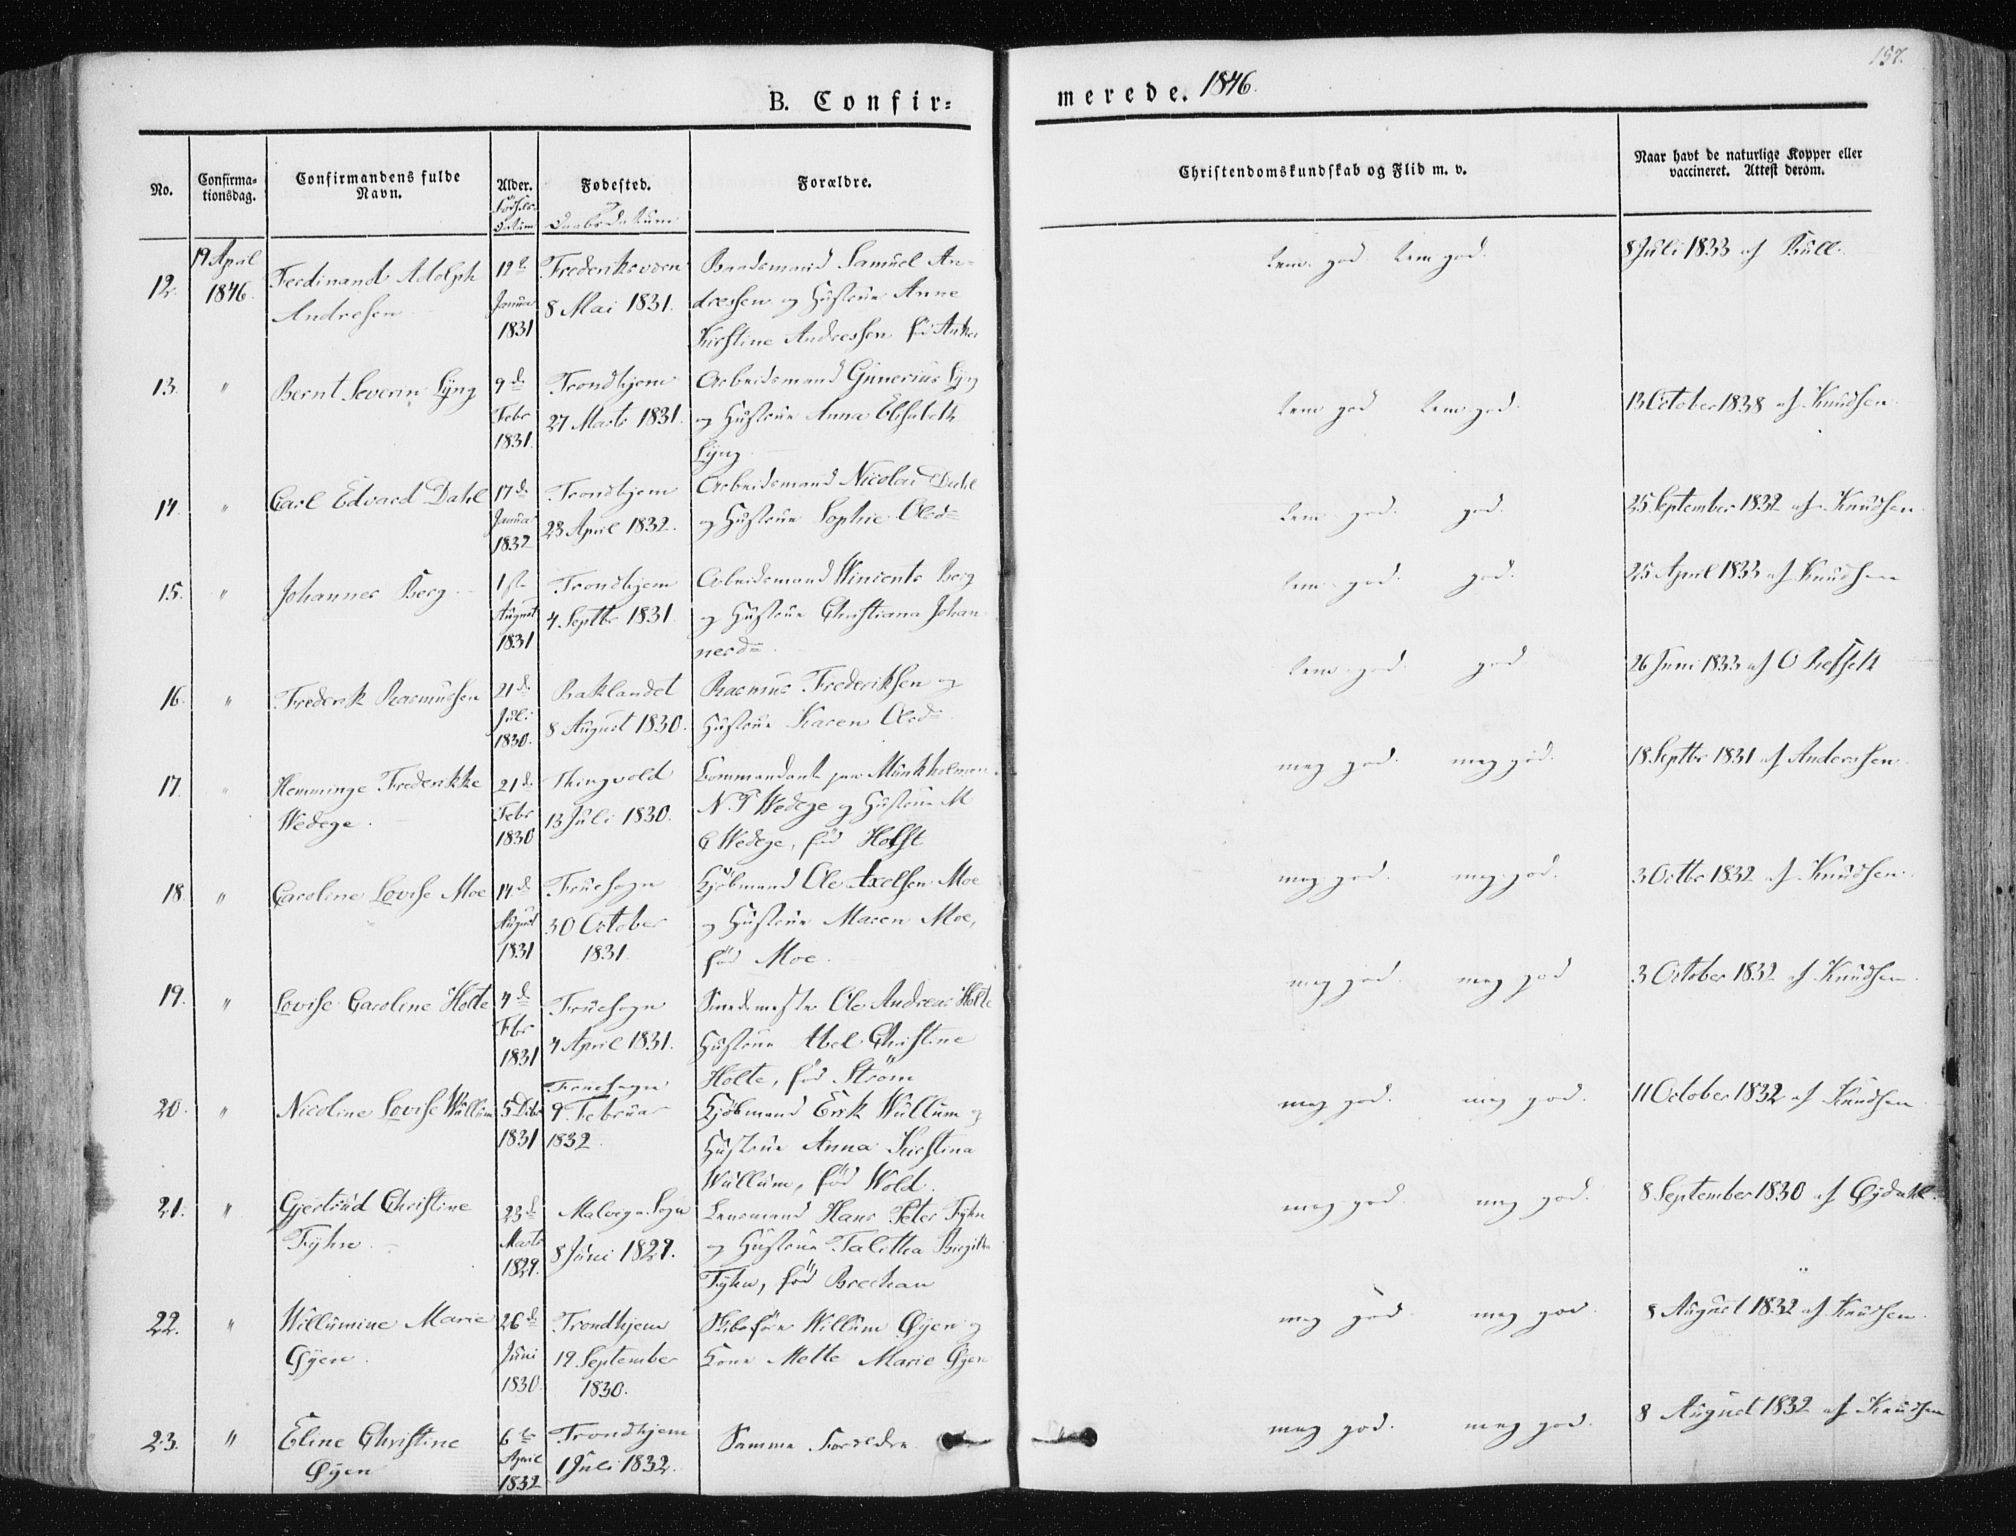 157.
B. Confir=
merede. 1846.
No.
Confirma=
tionsdag.
Confirmandens fulde
Navn.
Alder.
Fødsels-
Datum
Fødested.
Daabsdatum
Forældre.
Christendomskundskab og Flid m. v.
Naar havt de naturlige Kopper eller
vaccineret. Attest derom.
12. 19 April 1846. Ferdinand Adolph
Andresen
Januar
1831
Frederiksværn
8 Mai 1831.
Samuel An=
dressen og Hustrue Anne
Kirstine Andressen fød Anker
tem. god tem god.
8 Juli 1833 af Bull.
13. " Bernt Severin Lÿng
9de
Febr
1831.
Trondhjem
27 Marts 1831.
Arbeidsmand Gunerius Lÿng
og Hustrue Anna Elisabeth
Lÿng
tem god tem god.
13 October 1838 af Knudsen
14. " Carl Edvard Dahl
17de
Januar
1832
Trondhjem
23 April 1832.
Arbeidsmand Nicolai Dahl
og Hustrue Sophie Olsd=
tem god. god.
25 September 1832 af Knudsen
15. " Johannes Berg
1ste
August
1831
Trondhjem
4 Septbr 1831.
Arbeidsmand Wincents Berg
og Hustrue Christiana Johan
nesd=
tem god. god.
25 April 1833 af Knudsen
16. " Frederik Rasmussen
21de
Juli
1830.
Baklandet
8 August 1830.
Rasmus Frederiksen og
Hustrue Karen Olsd=
tem god. god
26 Juni 1833 af O
17. " Hemminge Frederikke
Wedege.
21de
Febr
1830
Thingvold
13 Juli 1830.
Commandant paa Munkholmen
N. T Wedege og Hustrue M
C Wedege, fød Holst
meg god. meg god.
18 Septbr 1831 af Anderssen
18. " Caroline Lovise Moe
14de
August
1831
Fruesogn
30 October
1831.
Kjøbmand Ole Axelsen Moe
og Hustrue Maren Moe,
fød Moe.
meg god. meg god.
3 Octbr 1832 af Knudsen
19. " Lovise Caroline Holte
4de
Febr
1831
Fruesogn
4 April 1831.
Smedemester Ole Andreas Holte
Hustrue Abel Christine
Holte, fød Strøm
meg god. meg god
3 October 1832 af Knudsen
20. " Nicoline Lovise Wullum
5 Debr
1831
Fruesogn
9 Februar
1832
Kjøbmand Erik Wullum og
Hustrue Anna Kirstina
Wullum, fød Wold.
meg god. meg god.
11 October 1832 af Knudsen
21. " Gjertrud Christine
Fÿhn.
23de
Marts
1829.
Malvigs Sogn
8 Juni 1829.
Lensmand Hans Peter Fÿhn
og Hustrue Talitha Birgitte
Fÿhn, fød Brechan
meg god. meg god.
8 September 1830 af Øydahl.
22. " Willumine Marie
Øÿen.
26de
Juni
1830
Trondhjem
19 September
1830.
Willum Øÿen og
Kone Mette Marie Øÿen
meg god. meg god.
8 August 1832 af Knudsen
23. " Eline Christine
Øÿen
6te
April
1832
Trondhjem
1 Juli 1832.
Samme Forældre
meg god. meg god.
8 August 1832 af Knudsen